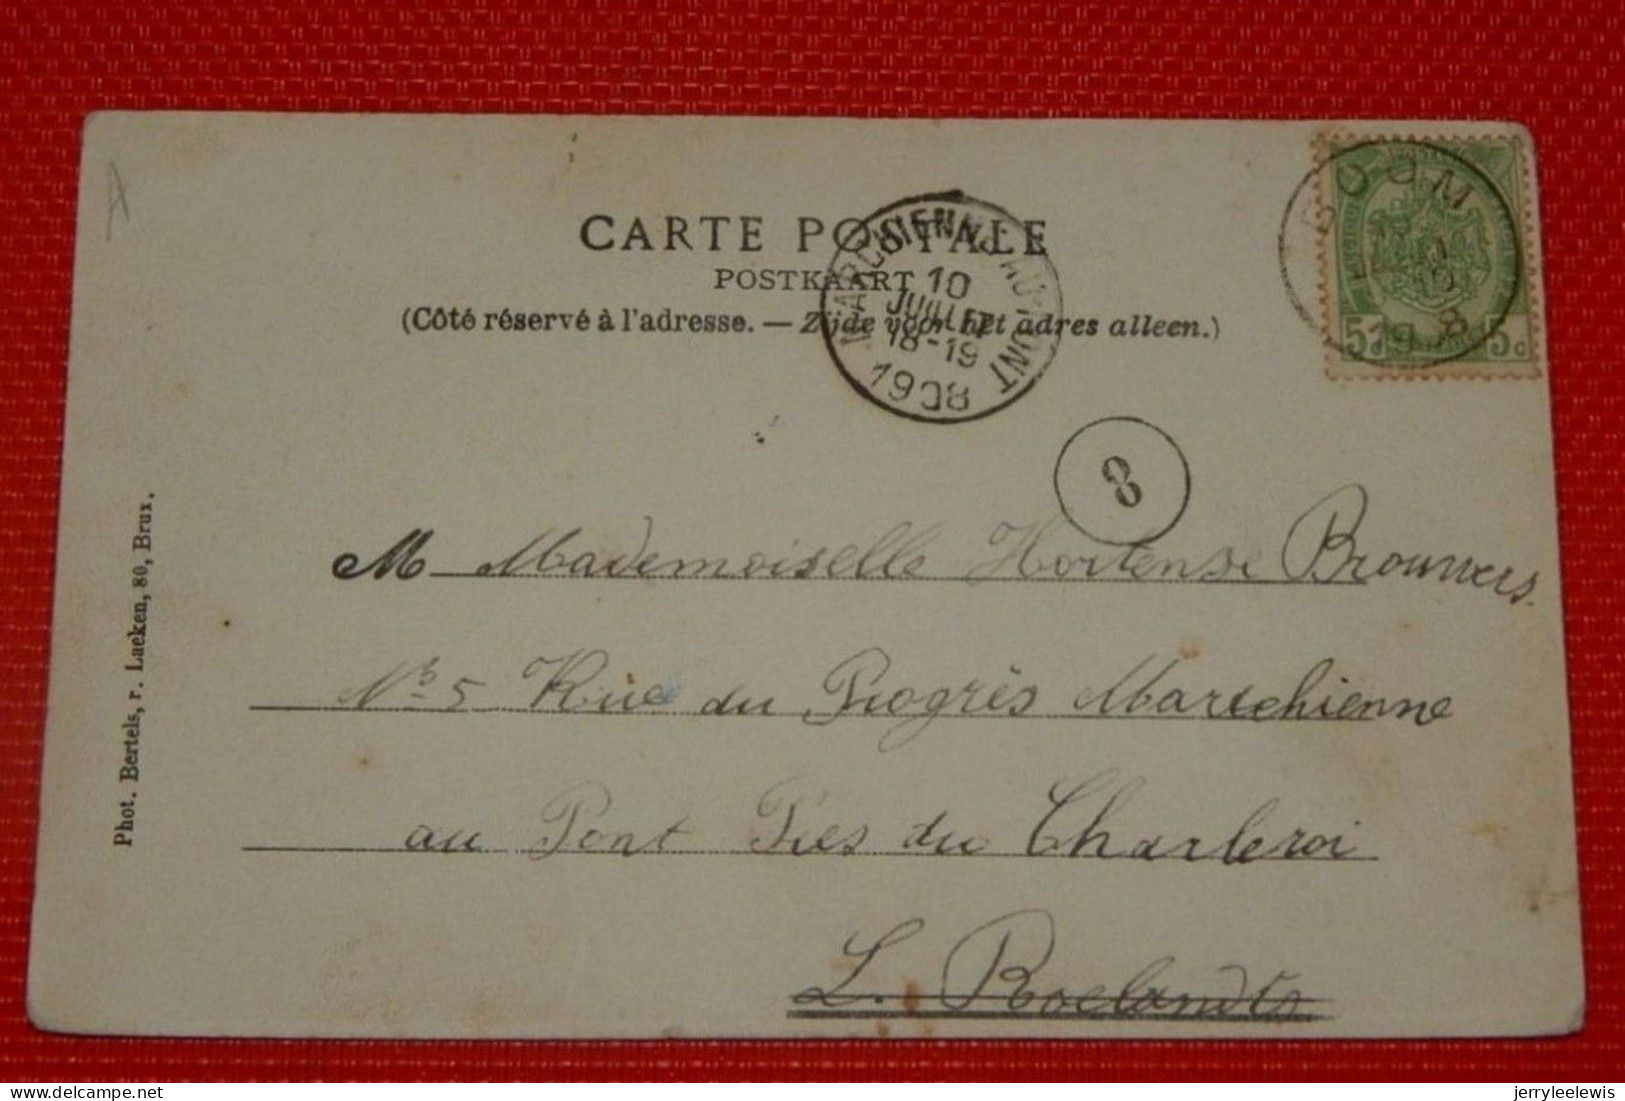 CARTE POSTALE
POSTKAART
(Côté réservé à l'adresse. — Zijde voor het adres alleen.)
MARCHIENNE-AU-PONT
10
JUILLET
18-19
1908
BOOM
5c 5c
8
M Mademoiselle Hortense Brouwers
No 5 Rue du Progrès Marchienne
au Pont Près du Charleroi
L. Roelandts
Phot. Bertels, r. Laeken, 80, Brux.
delcampe.net
jerryleelewis